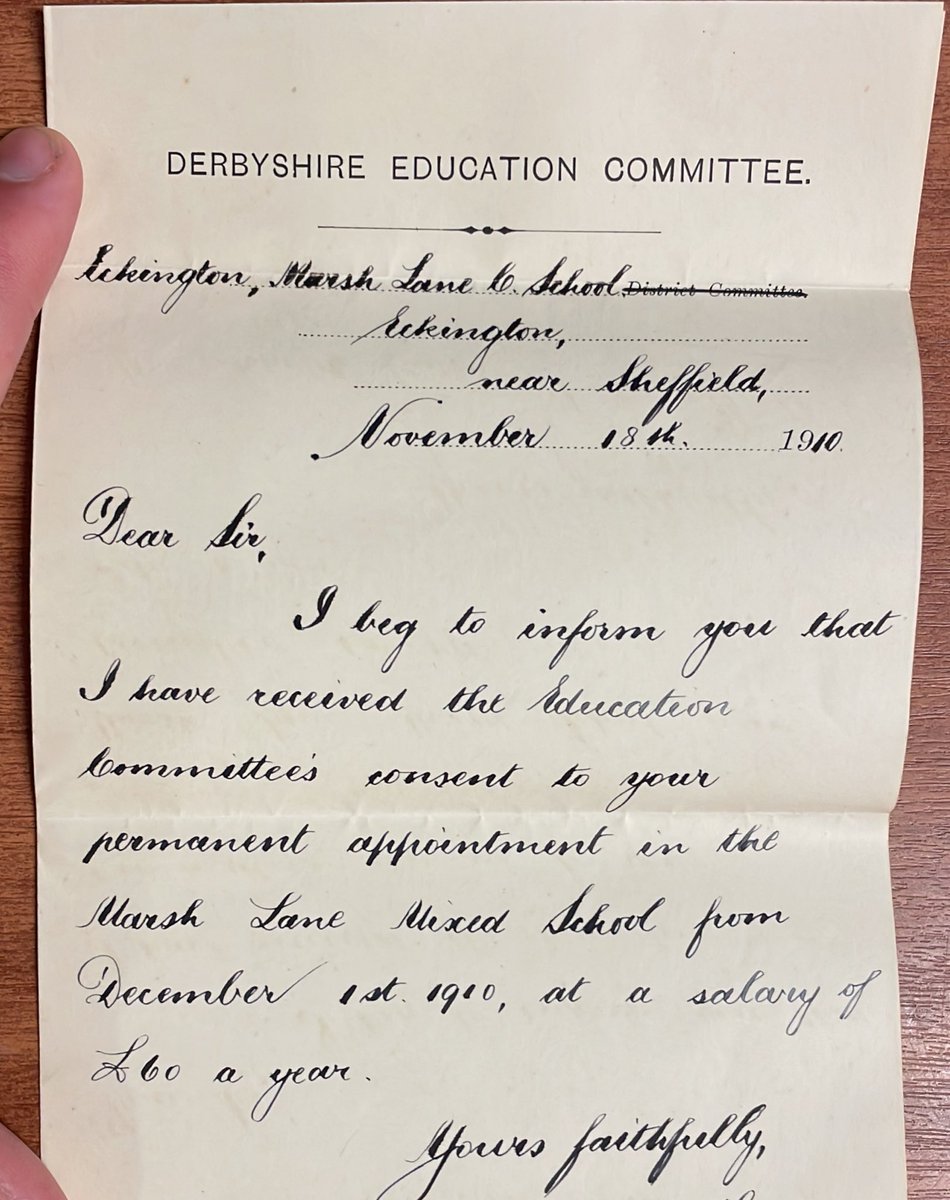 DERBYSHIRE EDUCATION COMMITTEE.
Eckington, Marsh Lane C. School District Committee.
Eckington,
near Sheffield,
November 18th. 1910.
Dear Sir,
I beg to inform you that
I have received the Education
Committee's consent to your
permanent appointment in the
Marsh Lane Mixed School from
December 1st. 1910, at a salary of
£60 a year.
Yours faithfully,